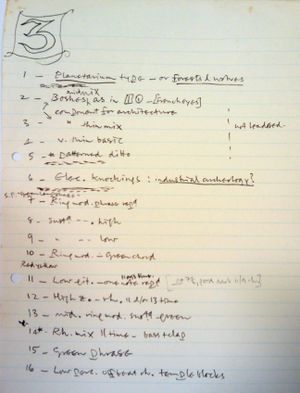 3
1 - Planetarium type - or forests & wolves
midmix
2 - Boshes, as in
component for architecture
3 - " thin mix
not leadered
4 - v. thin basic
5 - " patterned ditto
6 - Elec. knockings : industrial archeology?
7 - Ring mod. phrase repd
8 - sustd --. high
9 - " -- low
10 - Ring mod. - Green chord
11 - Low git. monotone repd
12 - High z. - rh. 11 d/or 13 time
13 - mid. ring mod. sustd green
14 - Rh. mix 11 time - bass & clap
15 - Green Phrase
16 - Low offbeat rh. temple blocks